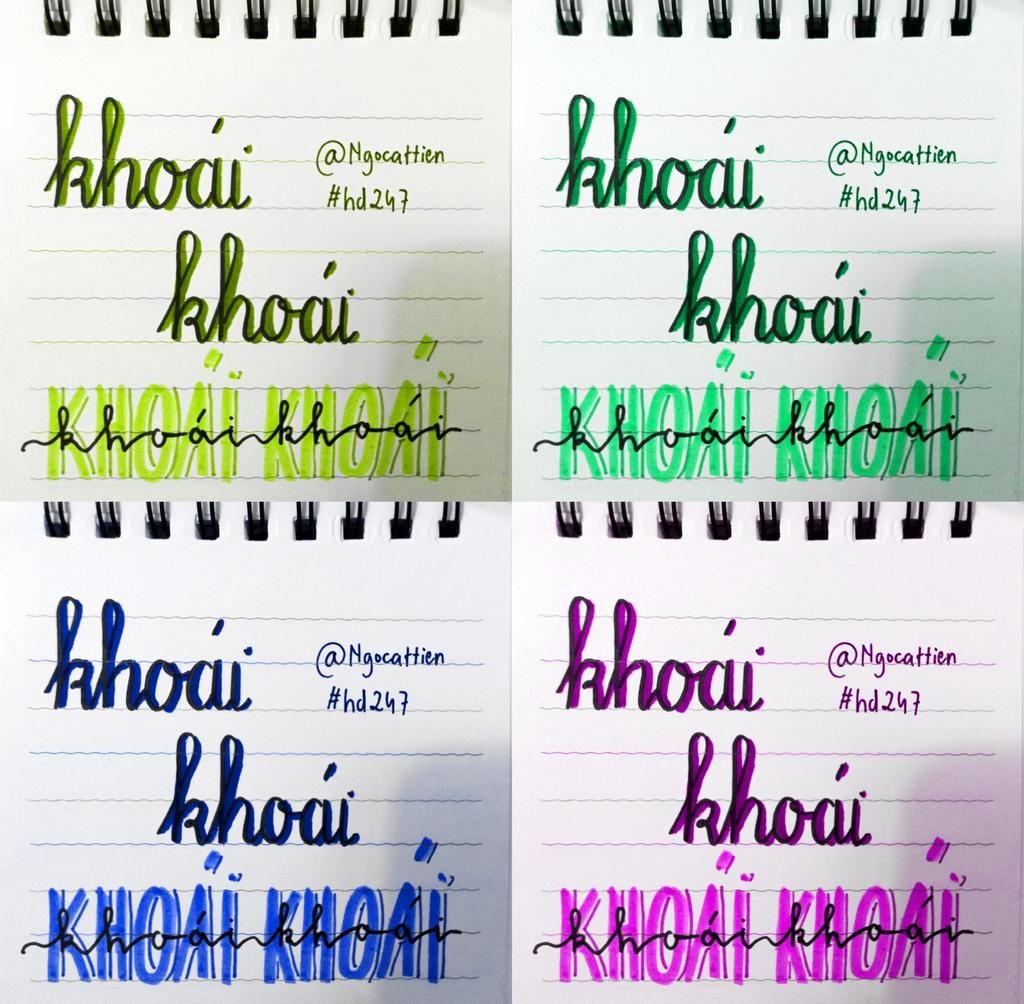 khoái
@Ngocattien
#hd247
khoái
KHOÁI KHOÁI
khoái khoái
khoái
@Ngocattien
#hd247
khoái
KHOÁI KHOÁI
khoái khoái
khoái
@Ngocattien
#hd247
khoái
KHOÁI KHOÁI
khoái khoái
khoái
@Ngocattien
#hd247
khoái
KHOÁI KHOÁI
khoái khoái